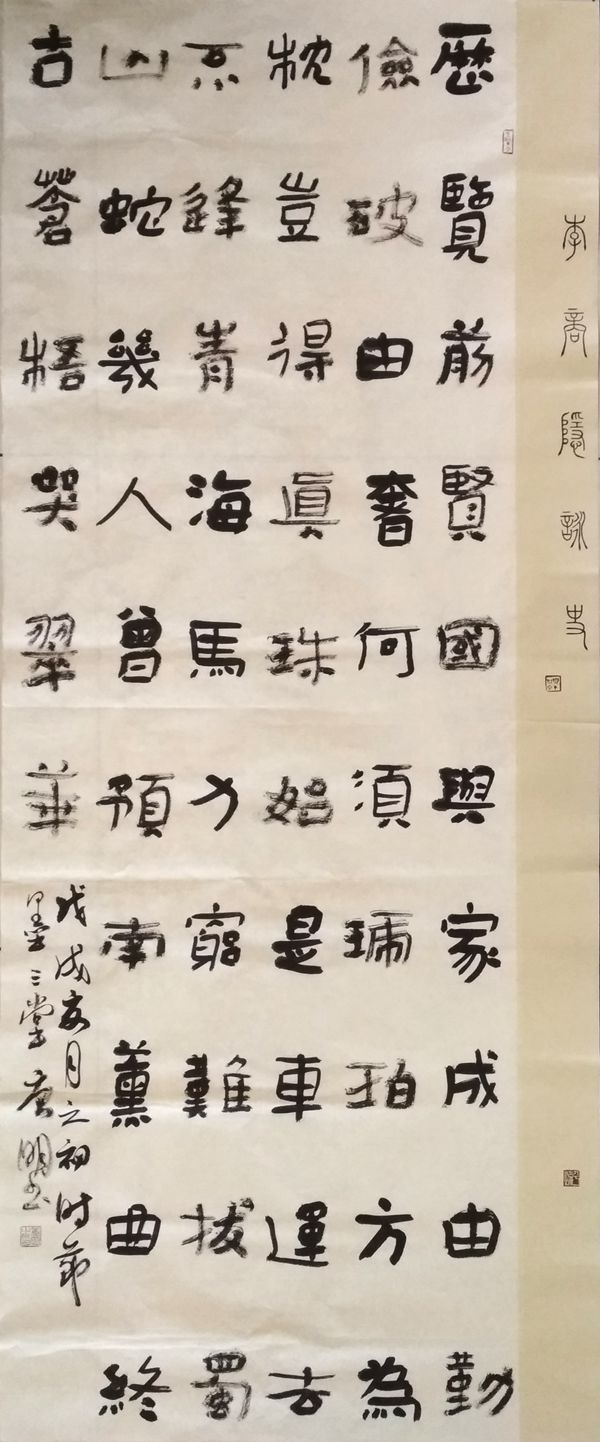 李商隱詠史
歷覽前賢國與家成由勤
儉破由奢何須琥珀方為
枕豈得眞珠始是車運去
不逢青海馬力窮難拔蜀
山蛇幾人曾預南薰曲終
古蒼梧哭翠華
戊戌亥月之初时節
墨三堂唐明书